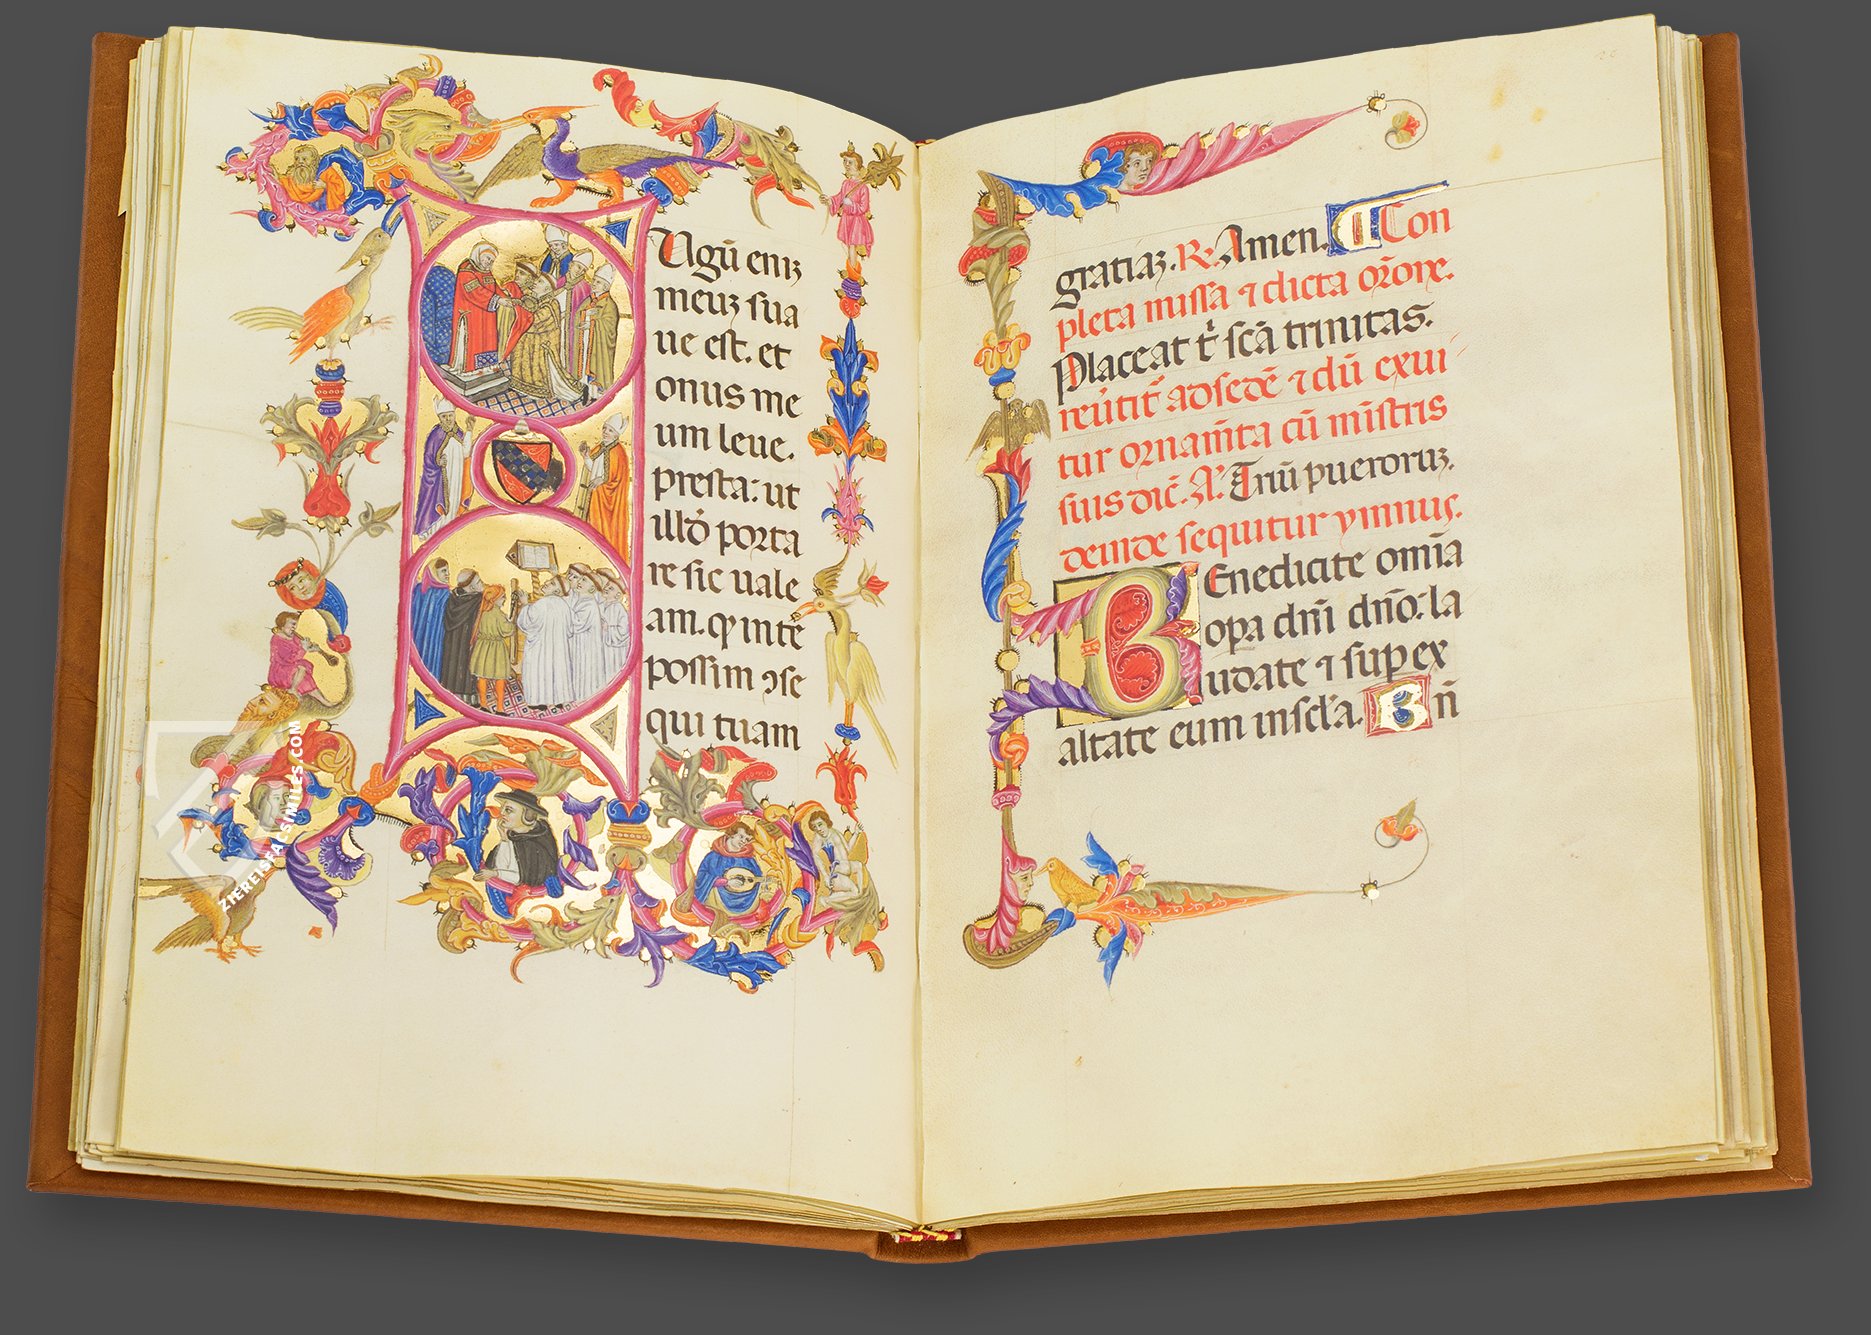 Iugū eniꝫ
meuꝫ sua
ue est. et
onus me
um leue.
presta: ut
illđ porta
re sic uale
am. qͥ in te
possim ↄse
qui tuam
gratiaꝫ. R̷. Amen. ¶ Con
pleta missa ⁊ dicta or̄one.
Placeat t̄ sc̄a trinitas.
reūtit̄ ad sedē ⁊ dū exui
tur ornam̄ta cū ministris
suis dic̄. A. Triū pueroruꝫ.
deinde sequitur ymnus.
Benedicite om̄ia
opa dn̄i dn̄o: la
udate ⁊ sup ex
altate eum in scl̄a. Bn̄
ZIEREISFACSIMILES.COM